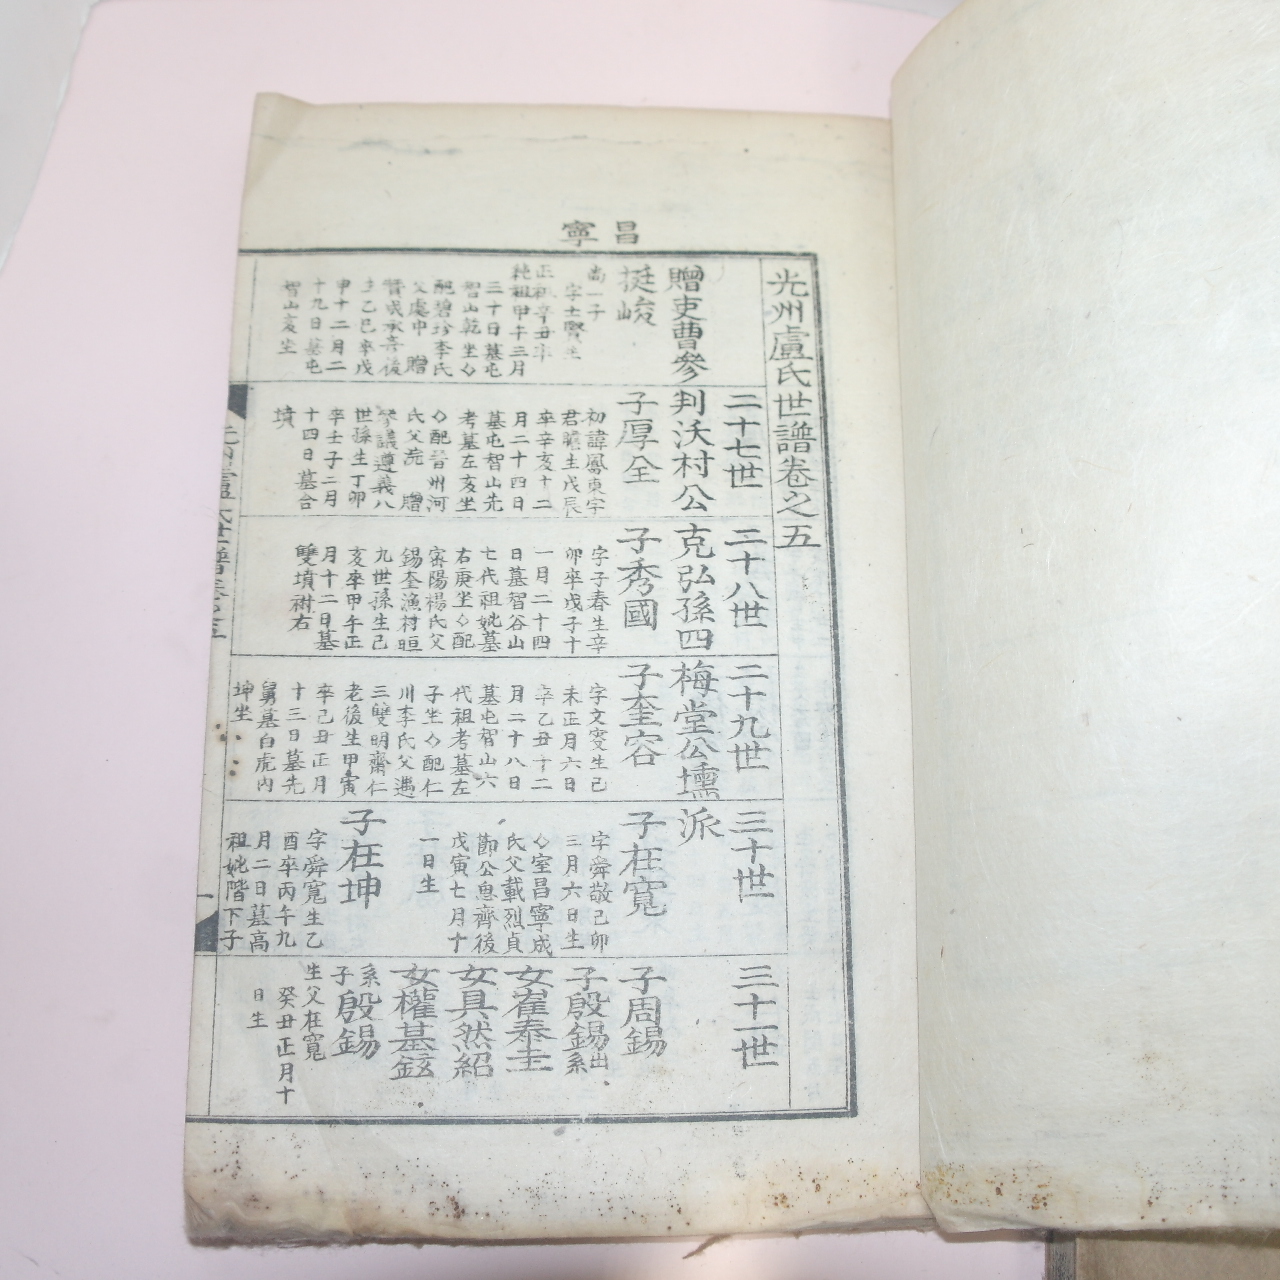 昌寧
光州盧氏世譜卷之五
二十七世
二十八世
二十九世
三十世
三十一世
贈吏曹參判沃村公克弘孫四梅堂公壎派
挺峻
尚一子
字士賢生
正祖辛丑卒
純祖甲午三月
三十日墓屯
智山乾坐◇
配碧珍李氏
父處中 贈
贊成承孝後
生乙巳卒戊
申十二月二
十九日墓屯
智山亥坐
子厚全
初諱鳳東字
君瞻生戊辰
卒辛亥十二
月二十四日
墓屯智山先
考墓左亥坐
◇配晉州河
氏父流 贈
參議遵義八
世孫生丁卯
卒壬子二月
十四日墓合
墳
子秀國
字子春生辛
卯卒戊子十
一月二十四
日墓智谷山
七代祖妣墓
右庚坐◇配
密陽楊氏父
錫奎漁村晅
九世孫生己
亥卒甲午正
月十二日墓
雙墳祔右
子奎容
字文燮生己
未正月六日
卒乙丑十二
月二十八日
墓屯智山六
代祖考墓左
子坐◇配仁
川李氏父邁
三雙明齋仁
老後生甲寅
卒己丑正月
十三日墓先
舅墓白虎內
坤坐
子在寬
字舜敬己卯
三月六日生
◇室昌寧成
氏父載烈貞
節公思齊後
戊寅七月十
一日生
子在坤
字舜寬生乙
酉卒丙午九
月二日墓高
祖妣階下子
子周錫
子殷錫系出
女崔泰圭
女具然紹
女權基鉉
系子殷錫
生父在寬
癸丑正月十
日生
光州盧氏世譜卷之五
一